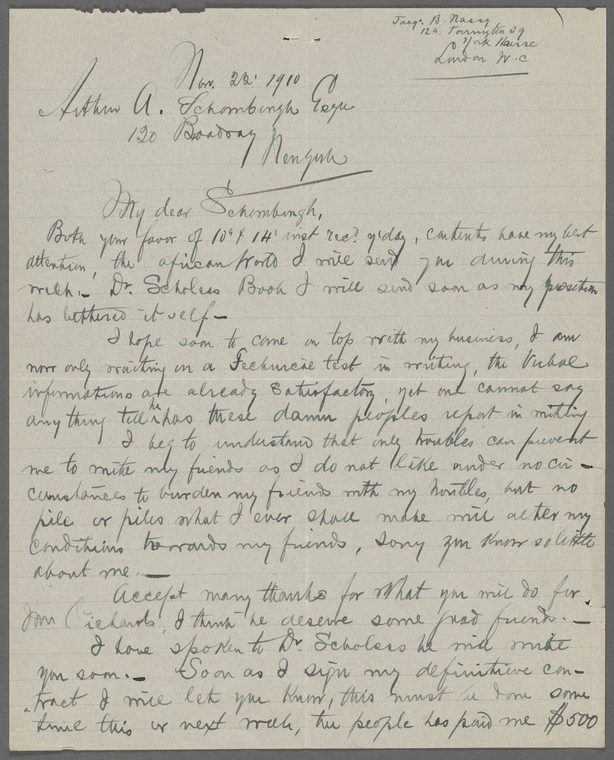 Jacq. B. Nassy
12a Torrington Sq
York House
London W.C
Nov. 22' 1910
Arthur A. Schombingh Esqu
120 Boadway
Newyork
My dear Schombingh,
Both your favor of 10' & 14' inst rec'd y'day, contents have my best
attention, the african World I will send you during this
week.- Dr. Scholess Book I will send soon as my position
has bettered it self.-
I hope soon to come on top with my business, I am
now only waiting on a Technical test in writing, the Verbal
informations are already satisfactory, yet one cannot say
any thing till he has these damn peoples report in writing
I beg to understand that only troubles can prevent
me to write my friends as I do not like under no cir-
cumstances to burden my friends with my troubles, but no
pile or piles what I ever shall make will alter my
conditions towards my friends, sorry you know so little
about me.-
Accept many thanks for what you will do for
Richards, I think he deserve some good friends.-
I have spoken to Dr. Scholess he will write
you soon.- Soon as I sign my definitive con-
tract I will let you know, this must be done some
time this or next week, the people has paid me $500